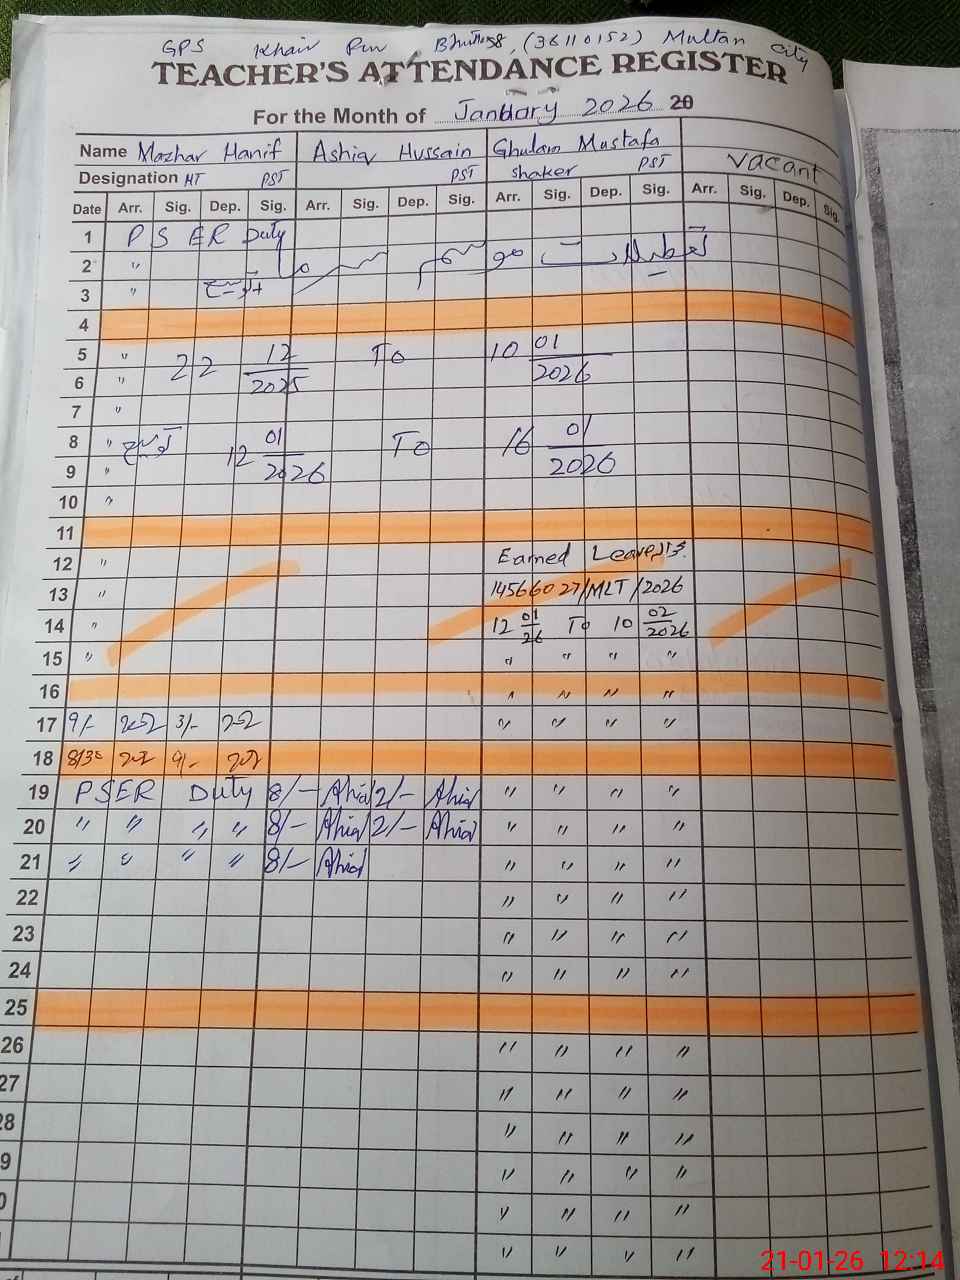 GPS Khair Pur Bhutta, (36110152) Multan City
TEACHER'S ATTENDANCE REGISTER
For the Month of January 2026 20
Name Mazhar Hanif Ashiq Hussain Ghulam Mustafa Shaker Vacant
Designation HT PST PST PST
Date Arr. Sig. Dep. Sig. Arr. Sig. Dep. Sig. Arr. Sig. Dep. Sig. Arr. Sig. Dep. Sig.
1 PSER Duty
2 "
3 "
4
5 " 22 12 To 10 01
6 " 2025 2026
7 "
8 " 12 01 To 16 01
9 " 2026 2026
10 "
11
12 " Earned Leave
13 " 14566027/MLT/2026
14 " 12 01/26 To 10 02/2026
15 " " " " "
16 " " " "
17 9/- 3/- " " " "
18 8/30 9/-
19 PSER Duty 8/- Ahid 2/- Ahid " " " "
20 " " " " 8/- Ahid 2/- Ahid " " " "
21 " " " " 8/- Ahid " " " "
22 " " " "
23 " " " "
24 " " " "
25
26 " " " "
27 " " " "
28 " " " "
9 " " " "
0 " " " "
" " " "
21-01-26 12:14